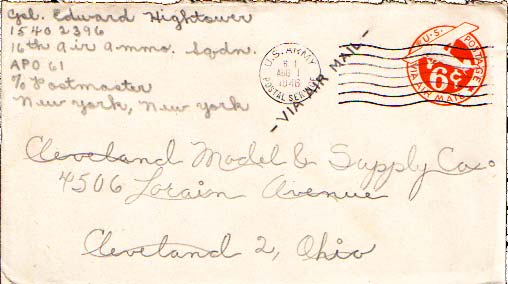 Cpl. Edward Hightower
15402396
16th Air Ammo. Sqdn.
APO 61
℅ Postmaster
New York, New York
U.S. ARMY
AUG 1
1946
POSTAL SERVICE
- VIA AIR MAIL -
U.S. POSTAGE
6¢
VIA AIR MAIL
Cleveland Model & Supply Co.
4506 Lorain Avenue
Cleveland 2, Ohio